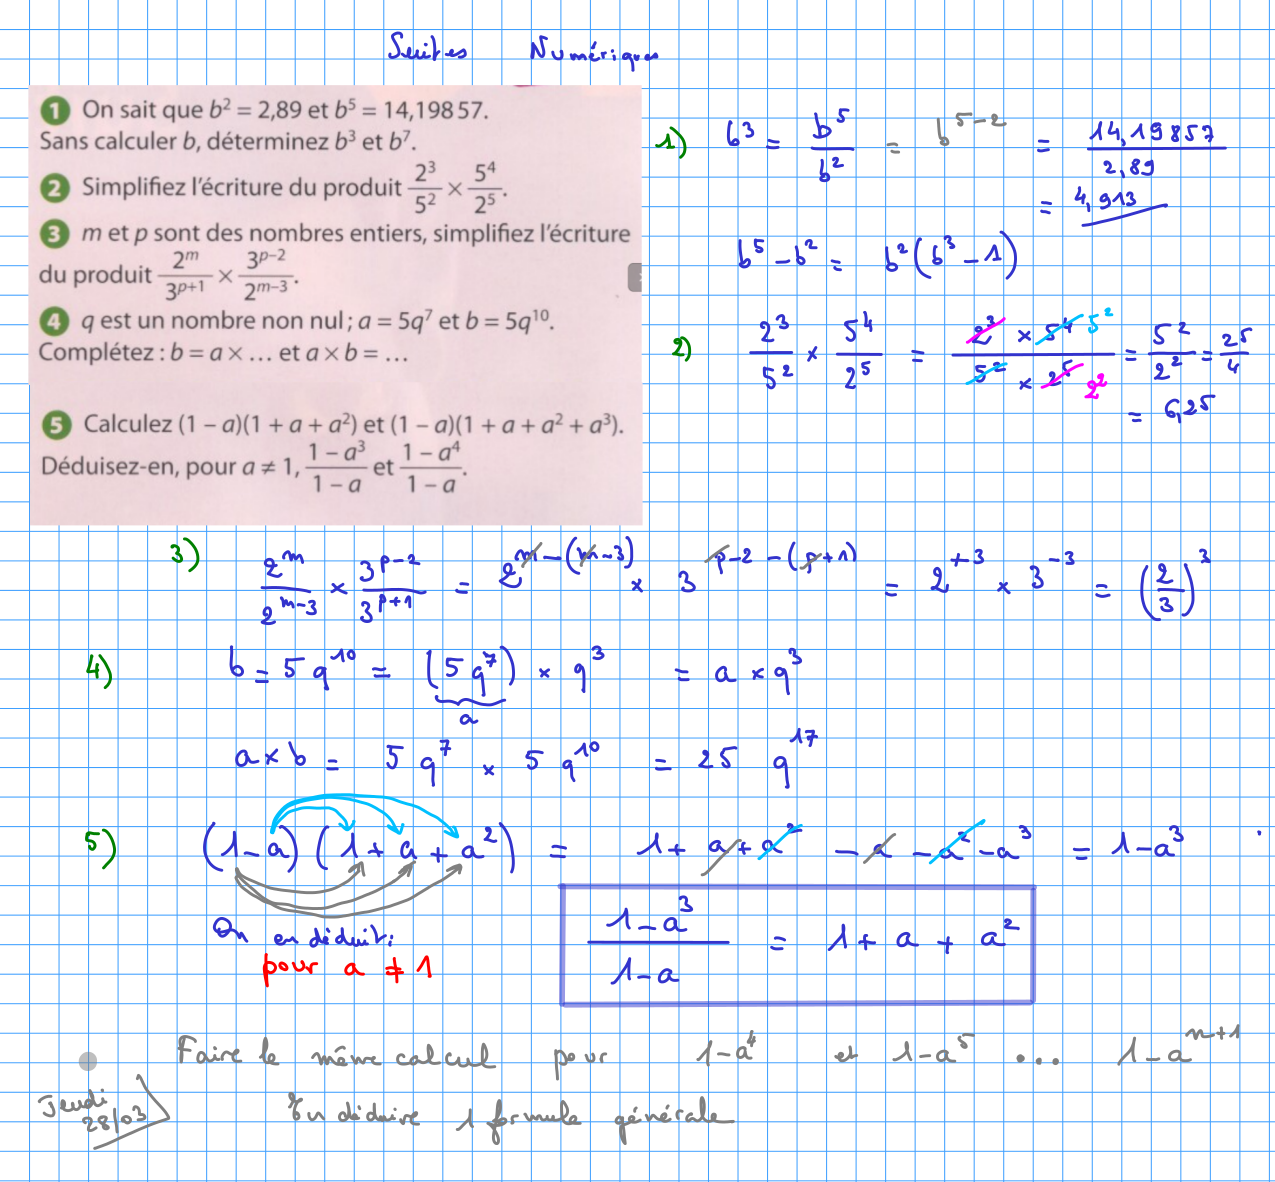 Suites Numériques
1 On sait que b² = 2,89 et b⁵ = 14,198 57.
Sans calculer b, déterminez b³ et b⁷.
2 Simplifiez l'écriture du produit 2³/5² × 5⁴/2⁵.
3 m et p sont des nombres entiers, simplifiez l'écriture
du produit 2^m/3^(p+1) × 3^(p−2)/2^(m−3).
4 q est un nombre non nul ; a = 5q⁷ et b = 5q¹⁰.
Complétez : b = a × … et a × b = …
5 Calculez (1 − a)(1 + a + a²) et (1 − a)(1 + a + a² + a³).
Déduisez-en, pour a ≠ 1, (1 − a³)/(1 − a) et (1 − a⁴)/(1 − a).
1) b³ = b⁵/b² = b^(5−2) = 14,19857/2,89
= 4,913
b⁵ − b² = b²(b³ − 1)
2) 2³/5² × 5⁴/2⁵ = (2³ × 5⁴ 5²)/(5² × 2⁵ 2²) = 5²/2² = 25/4
= 6,25
3) 2^m/2^(m−3) × 3^(p−2)/3^(p+1) = 2^(m−(m−3)) × 3^(p−2−(p+1)) = 2^(+3) × 3^(−3) = (2/3)³
4) b = 5q¹⁰ = (5q⁷) × q³ = a × q³
a
a × b = 5q⁷ × 5q¹⁰ = 25 q¹⁷
5) (1 − a)(1 + a + a²) = 1 + a + a² − a − a² − a³ = 1 − a³
On en déduit :
pour a ≠ 1
(1 − a³)/(1 − a) = 1 + a + a²
Faire le même calcul pour 1 − a⁴ et 1 − a⁵ ... 1 − a^(n+1)
Jeudi
28/03
En déduire 1 formule générale